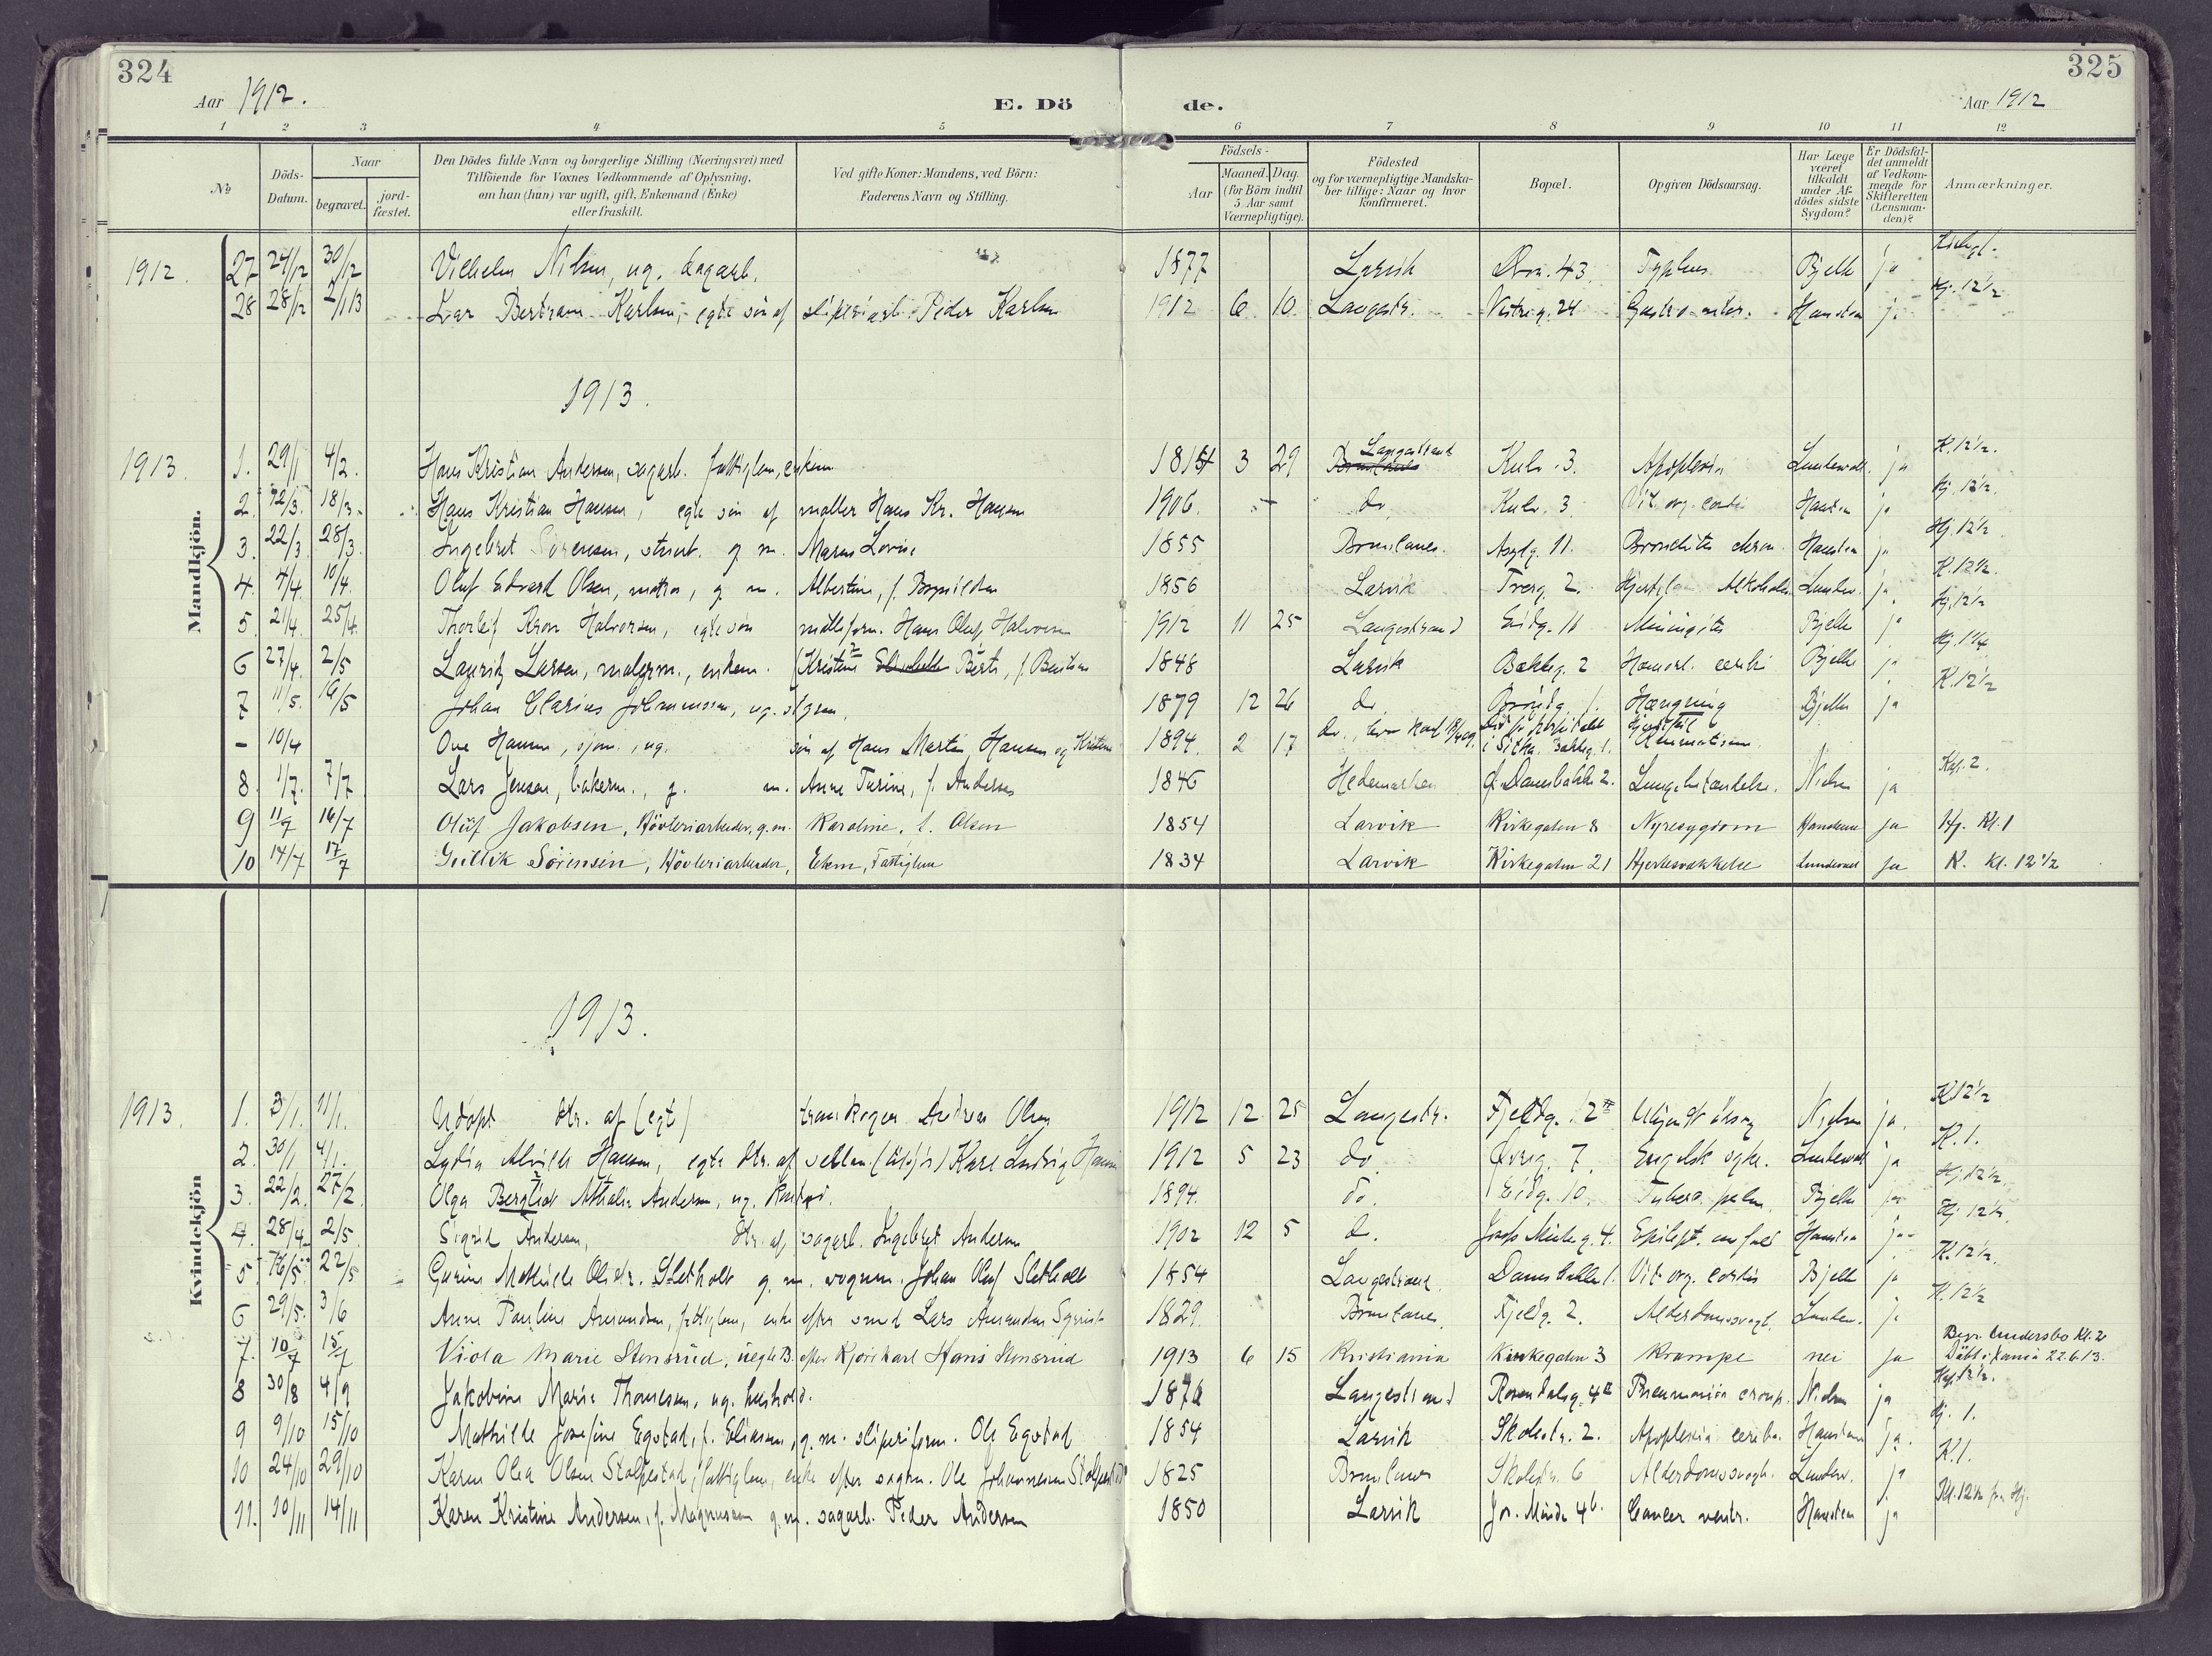 324
Aar 1912.
E. Dö
de.
Aar 1912
325
1 2 3 4 5 6 7 8 9 10 11 12
№
Döds-Datum.
Naar
begravet.
jord-fæstet.
Den Dödes fulde Navn og borgerlige Stilling (Næringsvei) med
Tilföiende for Voxnes Vedkommende af Oplysning,
om han (hun) var ugift, gift, Enkemand (Enke)
eller fraskilt.
Ved gifte Koner: Mandens, ved Börn:
Faderens Navn og Stilling.
Födsels-
Aar
Maaned. Dag.
(for Börn indtil
5 Aar samt
Værnepligtige).
Födested
og for værnepligtige Mandska-
ber tillige: Naar og hvor
konfirmeret.
Bopæl.
Opgiven Dödsaarsag.
Har Læge
været
tilkaldt
under Af-
dödes sidste
Sygdom?
Er Dödsfal-
det anmeldt
af Vedkom-
mende for
Skifteretten
(Lensman-
den)?
Anmærkninger.
Mandkjön.
1912. 27 24/12 30/12 Vilhelm Nilsen, ug. dagarb. 1877 Larvik 43 Typhus Bjelke ja
28 28/12 2/1 13 Ivar Bertram Karlsen, egte søn af sliperiarb. Peder Karlsen 1912 6 10 Langestr. Vestreg. 24 Gastro-enter. Hansteen ja Kj. 12½
1913.
1913. 1. 29/1 4/2. Hans Kristian Andersen, sagarb. fattiglem, enkem 3 29 Langestrand Kulv. 3. Apoplexia Lundevall. ja K. 12½.
2. 12/3. 18/3. Hans Kristian Hansen, egte søn af møller Hans Kr. Hansen 1906. do. Kulv. 3. Vit. org. cordis Hansteen ja Kj. 12½.
3. 22/3 28/3. Ingebret Sørensen, g. m. Maren Lovise 1855 Brunlanes. Asylg. 11. Bronchitis chron. Hansteen ja Kj. 12½
4. 4/4 10/4. Oluf Edvard Olsen, matros, g. m. Albertine, f. 1856 Larvik Tverg. 2. Alkoholism Lundev. ja K. 12½.
5. 21/4. 25/4. Thorleif Kron Halvorsen, egte søn mølleform. Hans Oluf Halvorsen 1912 11 25 Langestrand Eidg. 11 Meningitis Bjelke ja Kj. 12½
6 27/4. 2/5 Lauritz Larsen, malerm., enkem. (Kristine Berte, f. Bentsen 1848 Larvik Bakkeg. 2 Hæmorr. cerebri Bjelke ja
7 11/5. 16/5 Johan Clarius Johannessen, ug. 1879 12 26 do. Hængning Bjelke ja K. 12½
- 10/4 Ove Hansen, sjøm., ug. søn af Hans Martin Hansen og Kristine 1894. 2 17 do. Hjertefeil Rheumatisme
8. 1/7. 7/7 Lars Jensen, bakerm., g. m. Anne Turine, f. Andersen 1846 Hedemarken Damsbakke 2. Lungebetændelse. Nielsen ja Kap. 2.
9 11/7 16/7 Oluf Jakobsen, Høvleriarbeider, g. m. Karoline, f. Olsen 1854 Larvik Kirkegaten 8 Nyresygdom Hansteen ja Kj. Kl. 1
10 14/7 17/7 Gullik Sörensen, Høvleriarbeider, Ekm, Fattiglem 1834 Larvik Kirkegaten 21 Hjertesvækkelse Lundevall ja K. Kl. 12½
Kvindekjön
1913.
1913. 1. 3/1. 11/1. Udøpt dtr. af (egt) trankoger Andreas Olsen 1912 12 25 Langestr. Fjeldg. 2 Ukjendt årsag Nielsen ja. K 12½
2. 30/1 4/1. Lydia Alvilde Hansen, egte dtr. af Karl Ludvig Hansen 1912 5 23 do Øvreg. 7. Engelsk syke. Lundevall ja K. 1.
3. 22/2. 27/2. Olga Bergliot Athalie Andersen, ug. 1894. do. Eidg. 10. Tuberc. pulm. Bjelke ja Kj. 12½.
4. 28/4 2/5. Sigrid Andersen, dtr. af sagarb. Ingebret Andersen 1902 12 5 do. 4. Epilept. anfald Hansteen ja Kj. 12½.
5. 16/5. 22/5 Gurine Mathilde Olsdtr. Sletholt g. m. vognm. Johan Oluf Sletholt 1854 Langestrand. Damsbakke 1. Vit. org. cordis Bjelke ja K. 12½.
6 29/5. 3/6 Anne Pauline Amundsen, fattiglem, enke efter smed Lars Amundsen 1829. Brunlanes Fjeldg. 2. Alderdomssvagh. Lundev. ja K. 12½
7. 10/7 15/7 Viola Marie Stensrud, uegte B. efter Kjørekarl Hans Stensrud 1913 6 15 Kristiania Kirkegaten 3 Krampe nei ja Begr. Undersbo Kl. 2 Døbt i Xania 22.6.13.
8 30/8 4/9 Jakobine Marie Thomesen, ug. hushold. Langestrand Rosendalsg. 4 Pneumonia croup. Nielsen ja Kap. 12½.
9 9/10 15/10 Mathilde Josefine Egstad, f. Eliasen, g. m. sliperiform. Ole Egstad 1854 Larvik Skolestr. 2. Apoplexia cerebri. Hansteen ja. Kj. 1.
10 24/10 29/10 Karen Olea Olsen Stolpestad, fattiglem, enke efter sagm. Ole Johannesen Stolpestad 1825 Brunlanes Skolestr. 6 Alderdomssvagh. Lundev. ja K 1.
11. 10/11 14/11 Karen Kristine Andersen, f. Magnussen g. m. sagarb. Peder Andersen 1850 Larvik 4 b. Cancer ventr. Hansteen ja Kl. 12½ fra Kj.